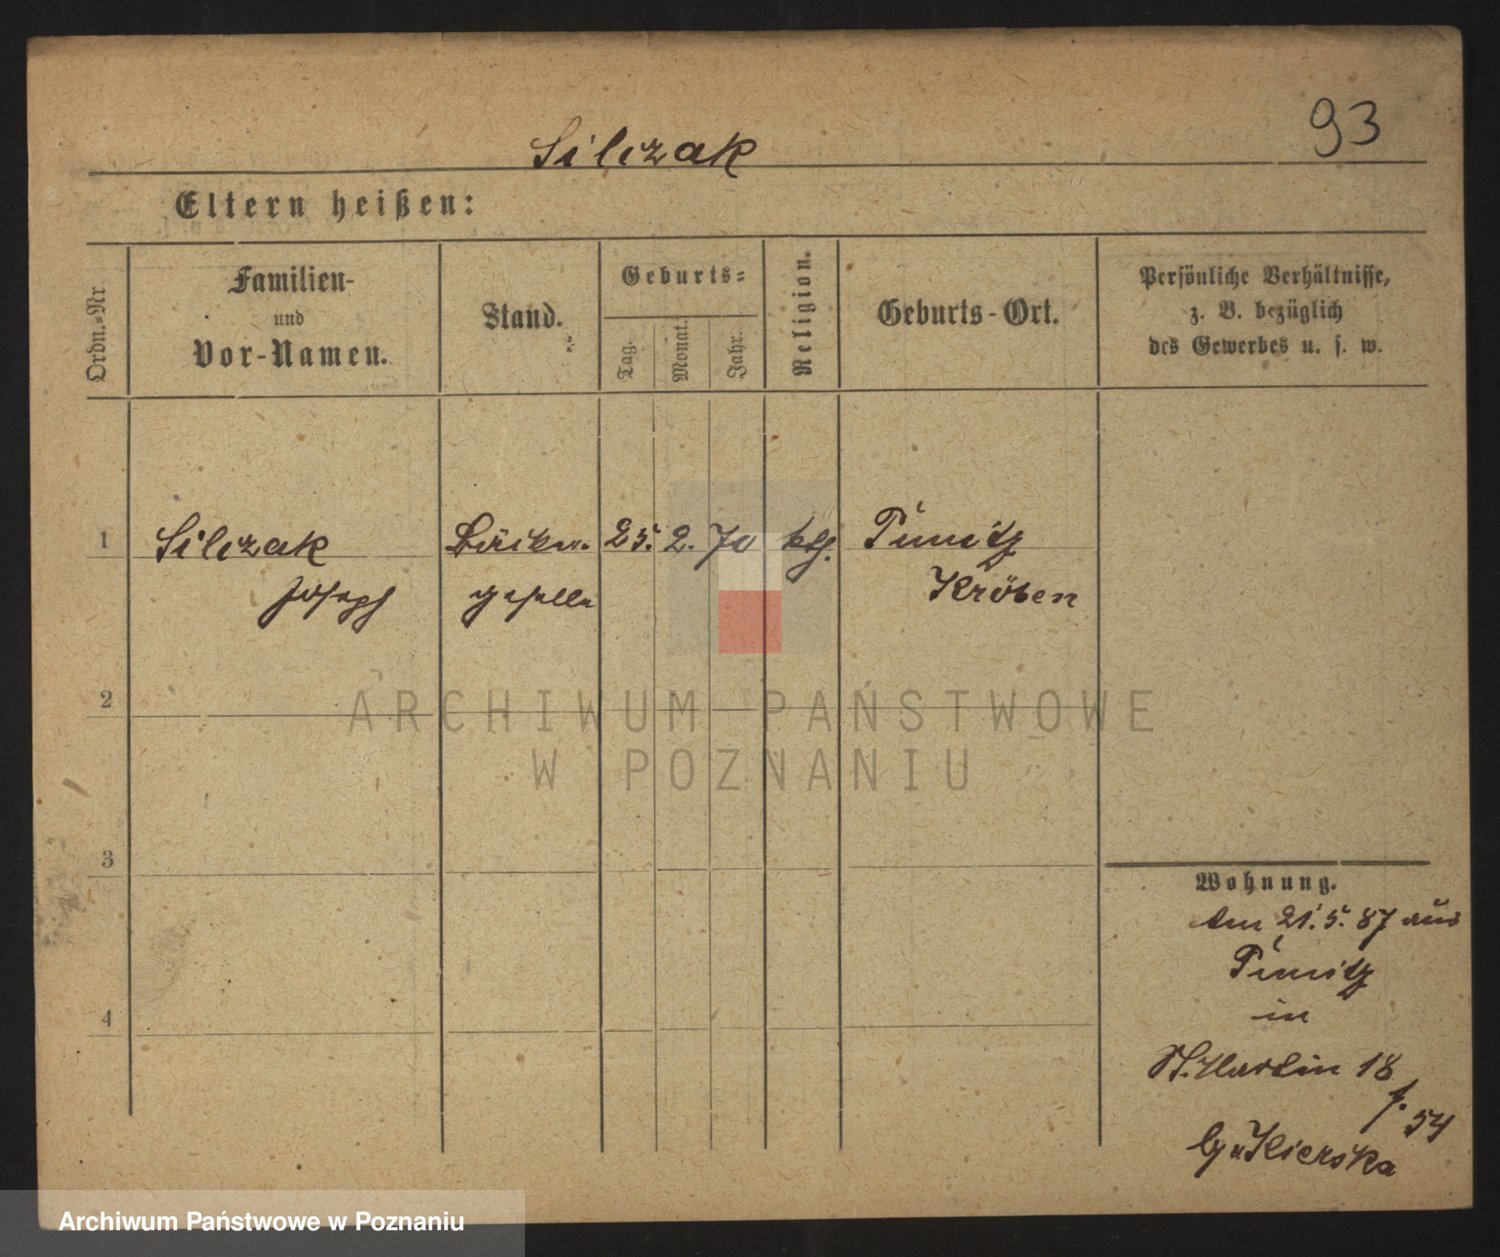 93
Silczak
Eltern heißen:
Ordn.-Nr
Familien-
und
Vor-Namen.
Stand.
Geburts-
Tag.
Monat.
Jahr.
Religion.
Geburts-Ort.
Persönliche Verhältnisse,
z. B. bezüglich
des Gewerbes u. s. w.
1 Silczak Bäcker- 25. 2. 70 kth. Punitz
Joseph geselle Kröben
2
ARCHIWUM PAŃSTWOWE
W POZNANIU
3
4
Wohnung.
Am 21.5.87 aus
Punitz
in
St. Martin 18
f. 54
Kierska
Archiwum Państwowe w Poznaniu